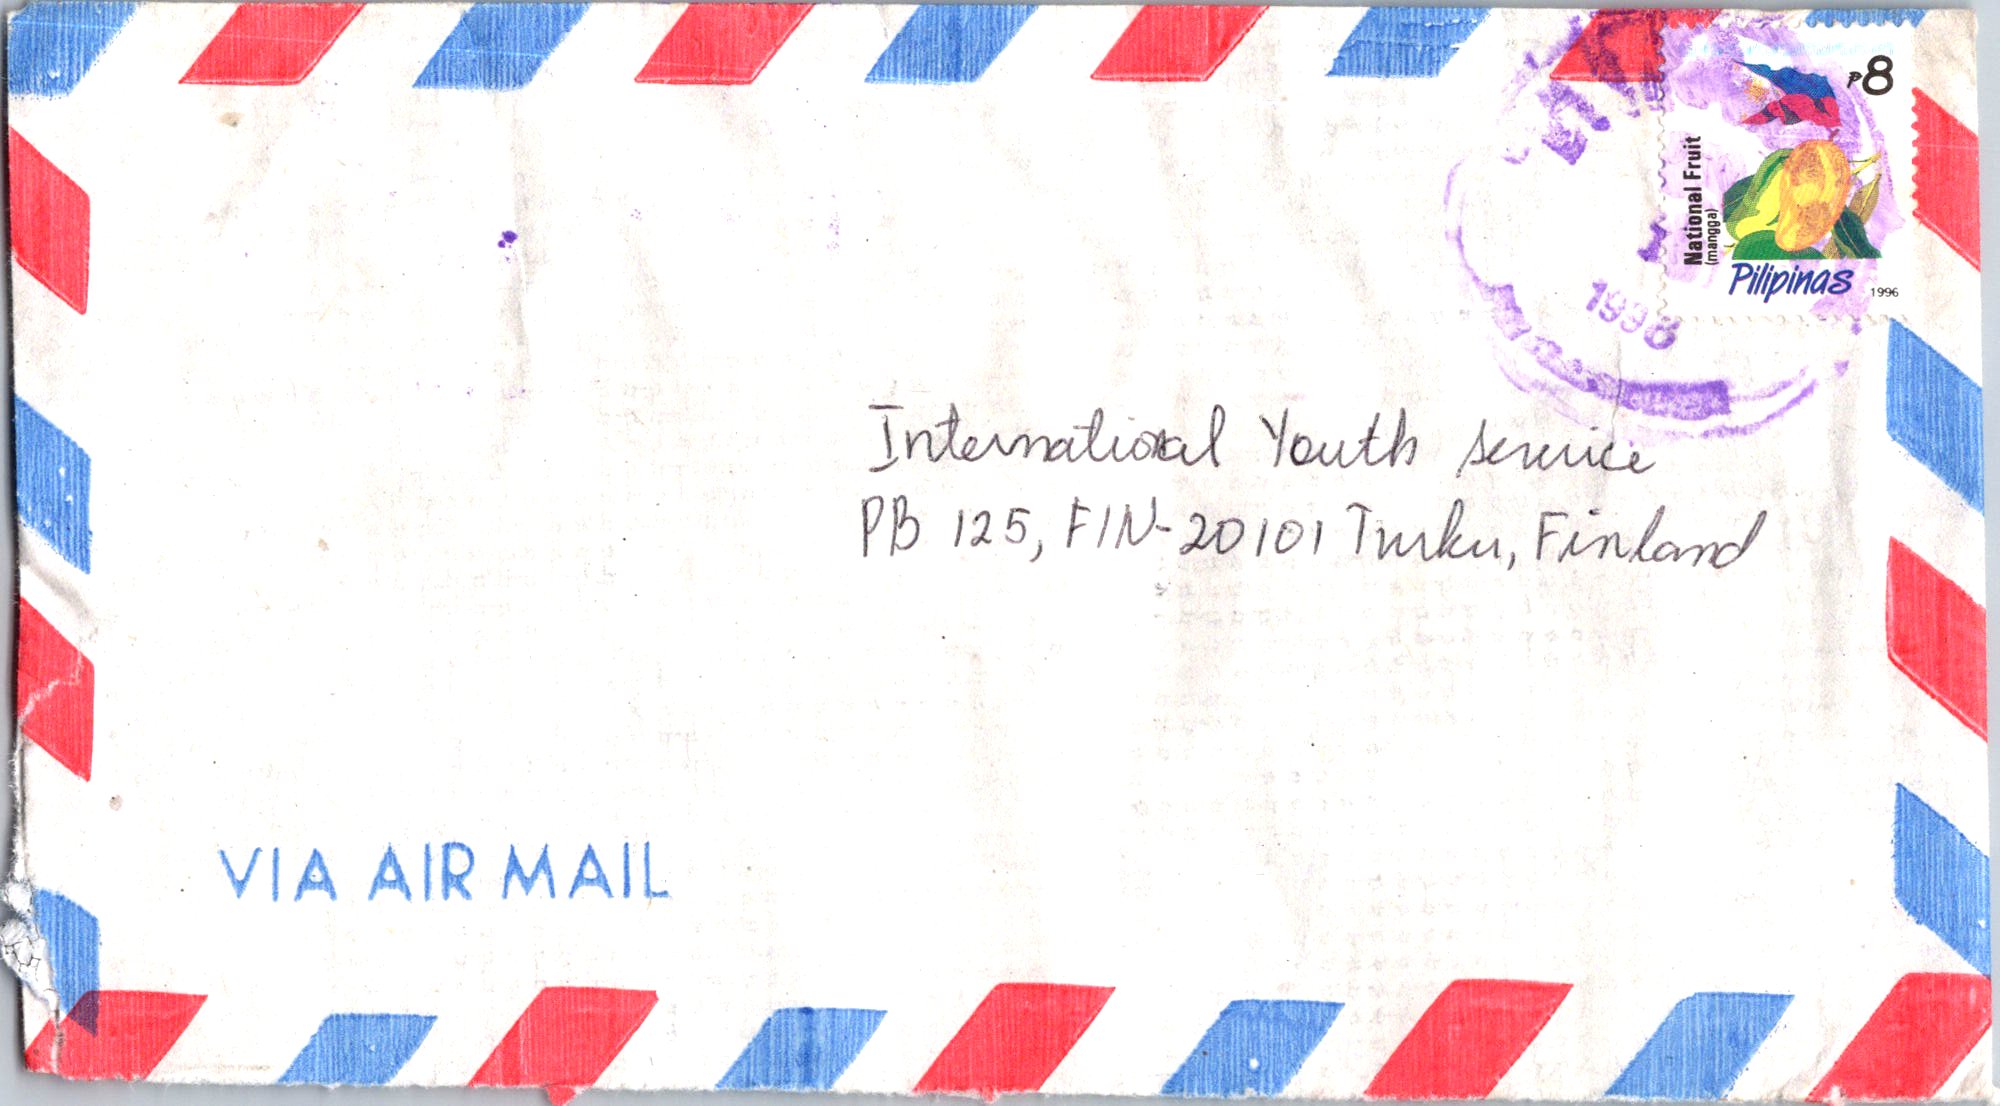 ₱8
National Fruit
(mangga)
Pilipinas 1996
1998
International Youth service
PB 125, FIN-20101 Turku, Finland
VIA AIR MAIL